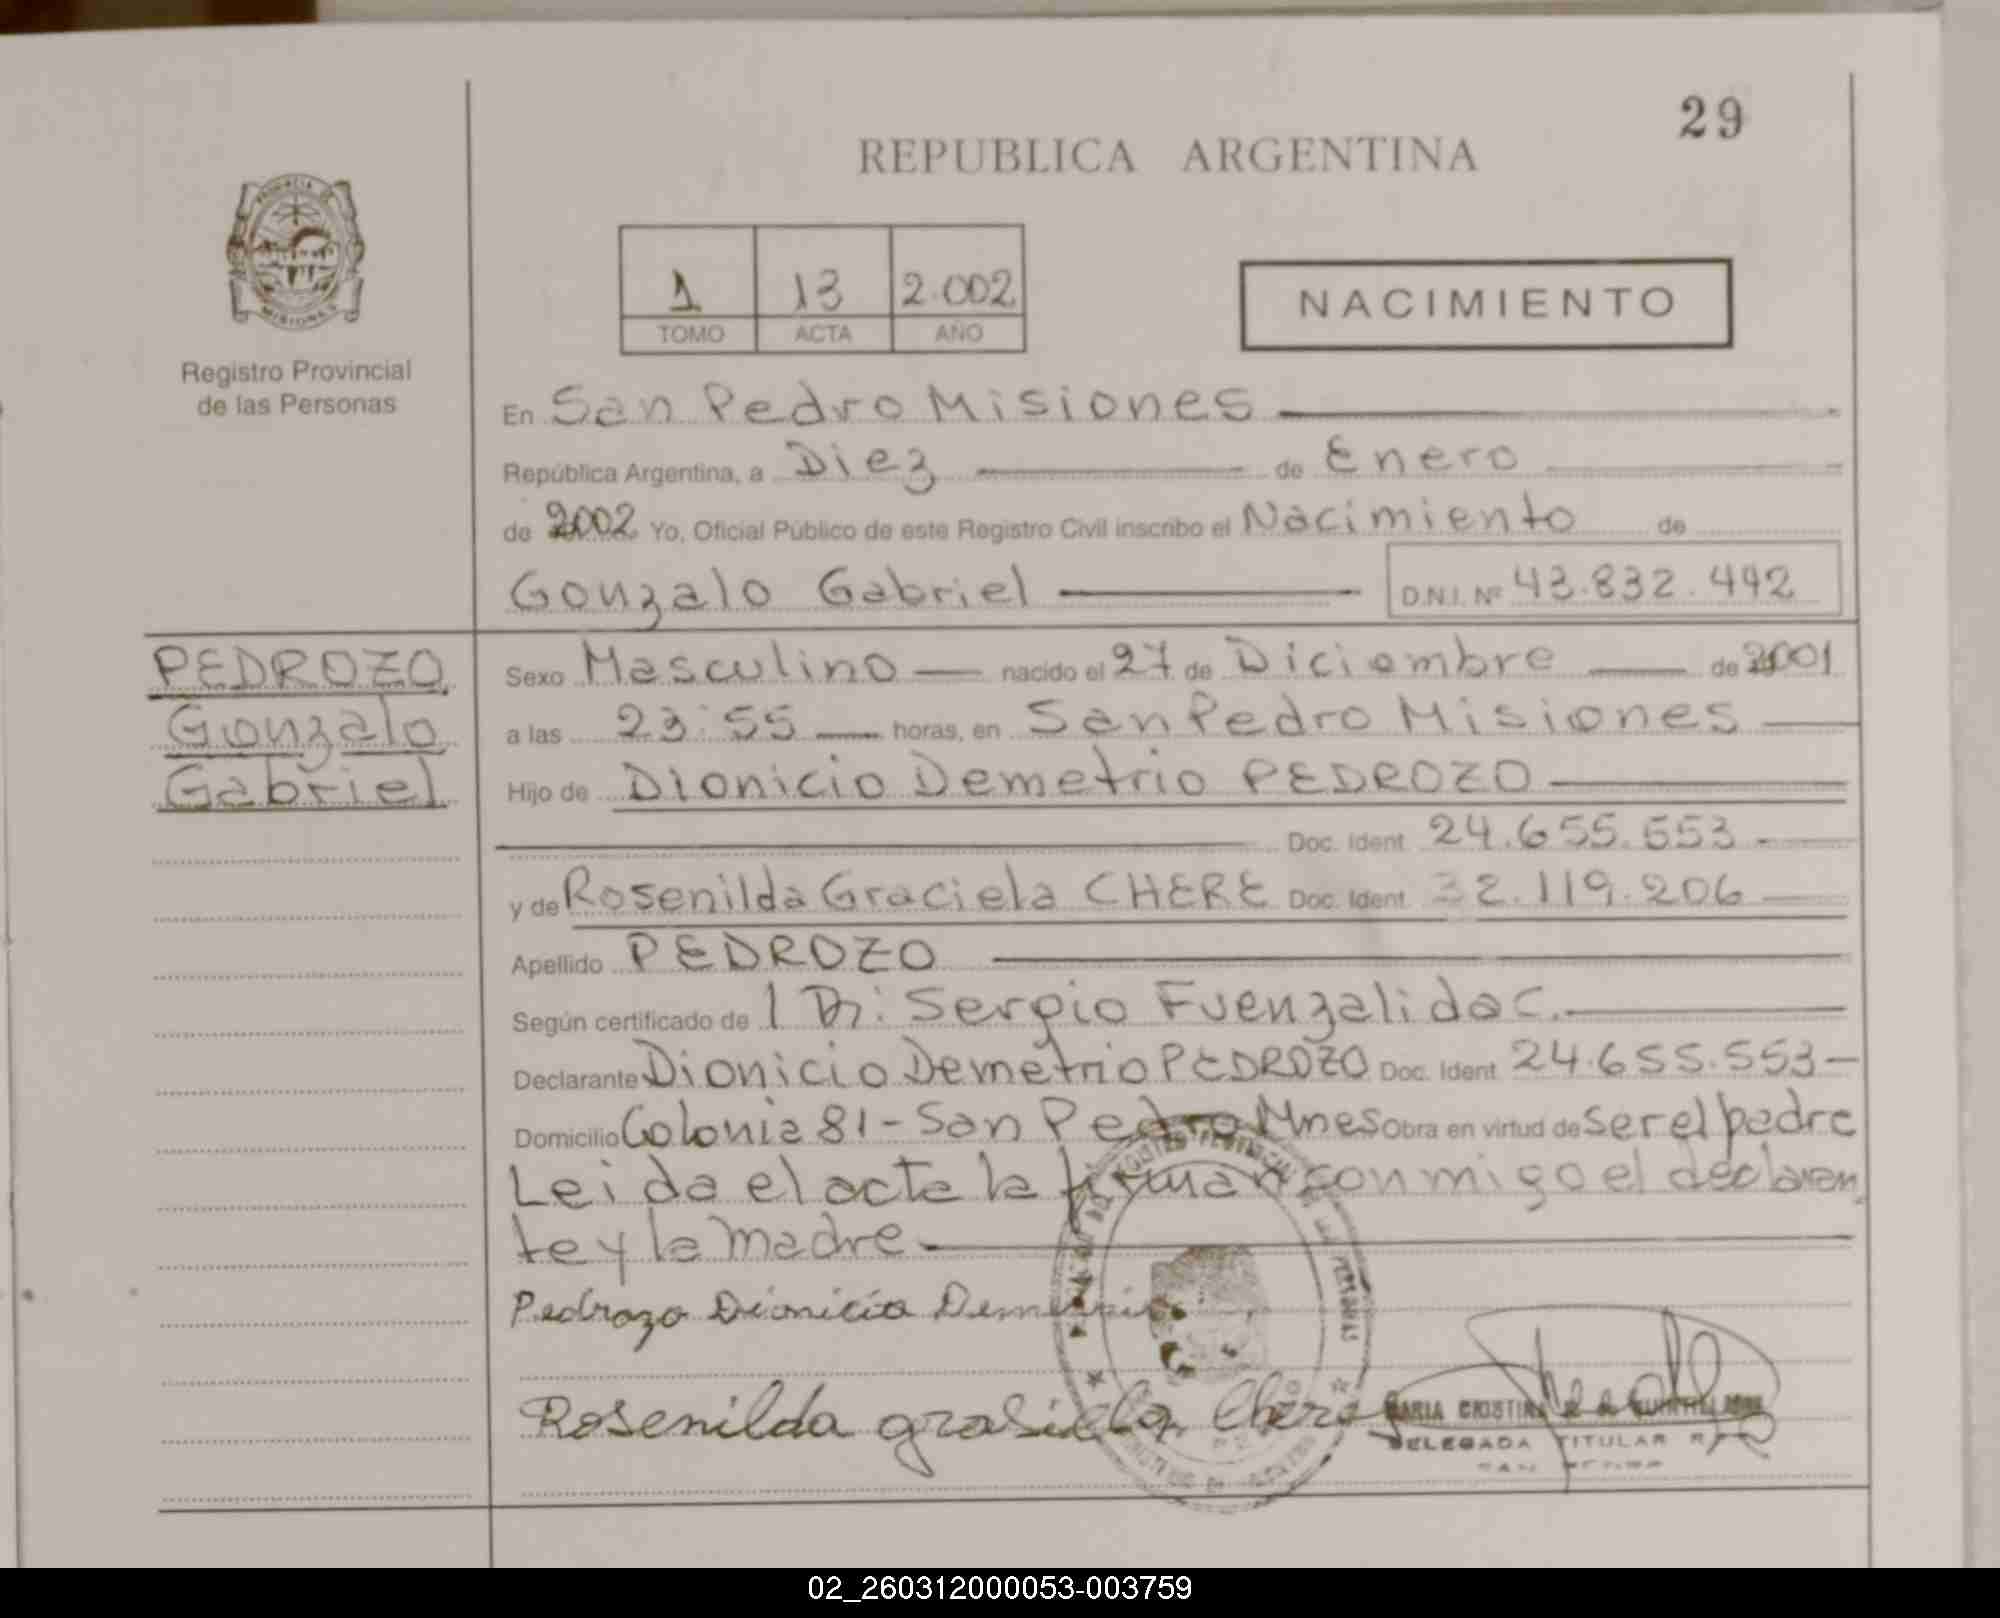 29
REPUBLICA ARGENTINA
PROVINCIA DE
MISIONES
Registro Provincial
de las Personas
1 13 2.002
TOMO ACTA AÑO
NACIMIENTO
En San Pedro Misiones
República Argentina, a Diez de Enero
de 2002 Yo, Oficial Público de este Registro Civil inscribo el Nacimiento de
Gonzalo Gabriel D.N.I. Nº 43.832.442
PEDROZO
Gonzalo
Gabriel
Sexo Masculino nacido el 27 de Diciembre de 2001
a las 23:55 horas, en San Pedro Misiones
Hijo de Dionicio Demetrio PEDROZO
Doc. Ident 24.655.553
y de Rosenilda Graciela CHERE Doc. Ident 32.119.206
Apellido PEDROZO
Según certificado de 1 Dr: Sergio Fuenzalida C.
Declarante Dionicio Demetrio PEDROZO Doc. Ident 24.655.553
Domicilio Colonia 81 - San Pedro Mnes Obra en virtud de ser el padre
Leida el acta la firman conmigo el declaran
te y la madre
Pedrozo Dionicio Demetrio
Rosenilda grasiela Chere
MARIA CRISTINA
DELEGADA TITULAR
SAN PEDRO
02_260312000053-003759